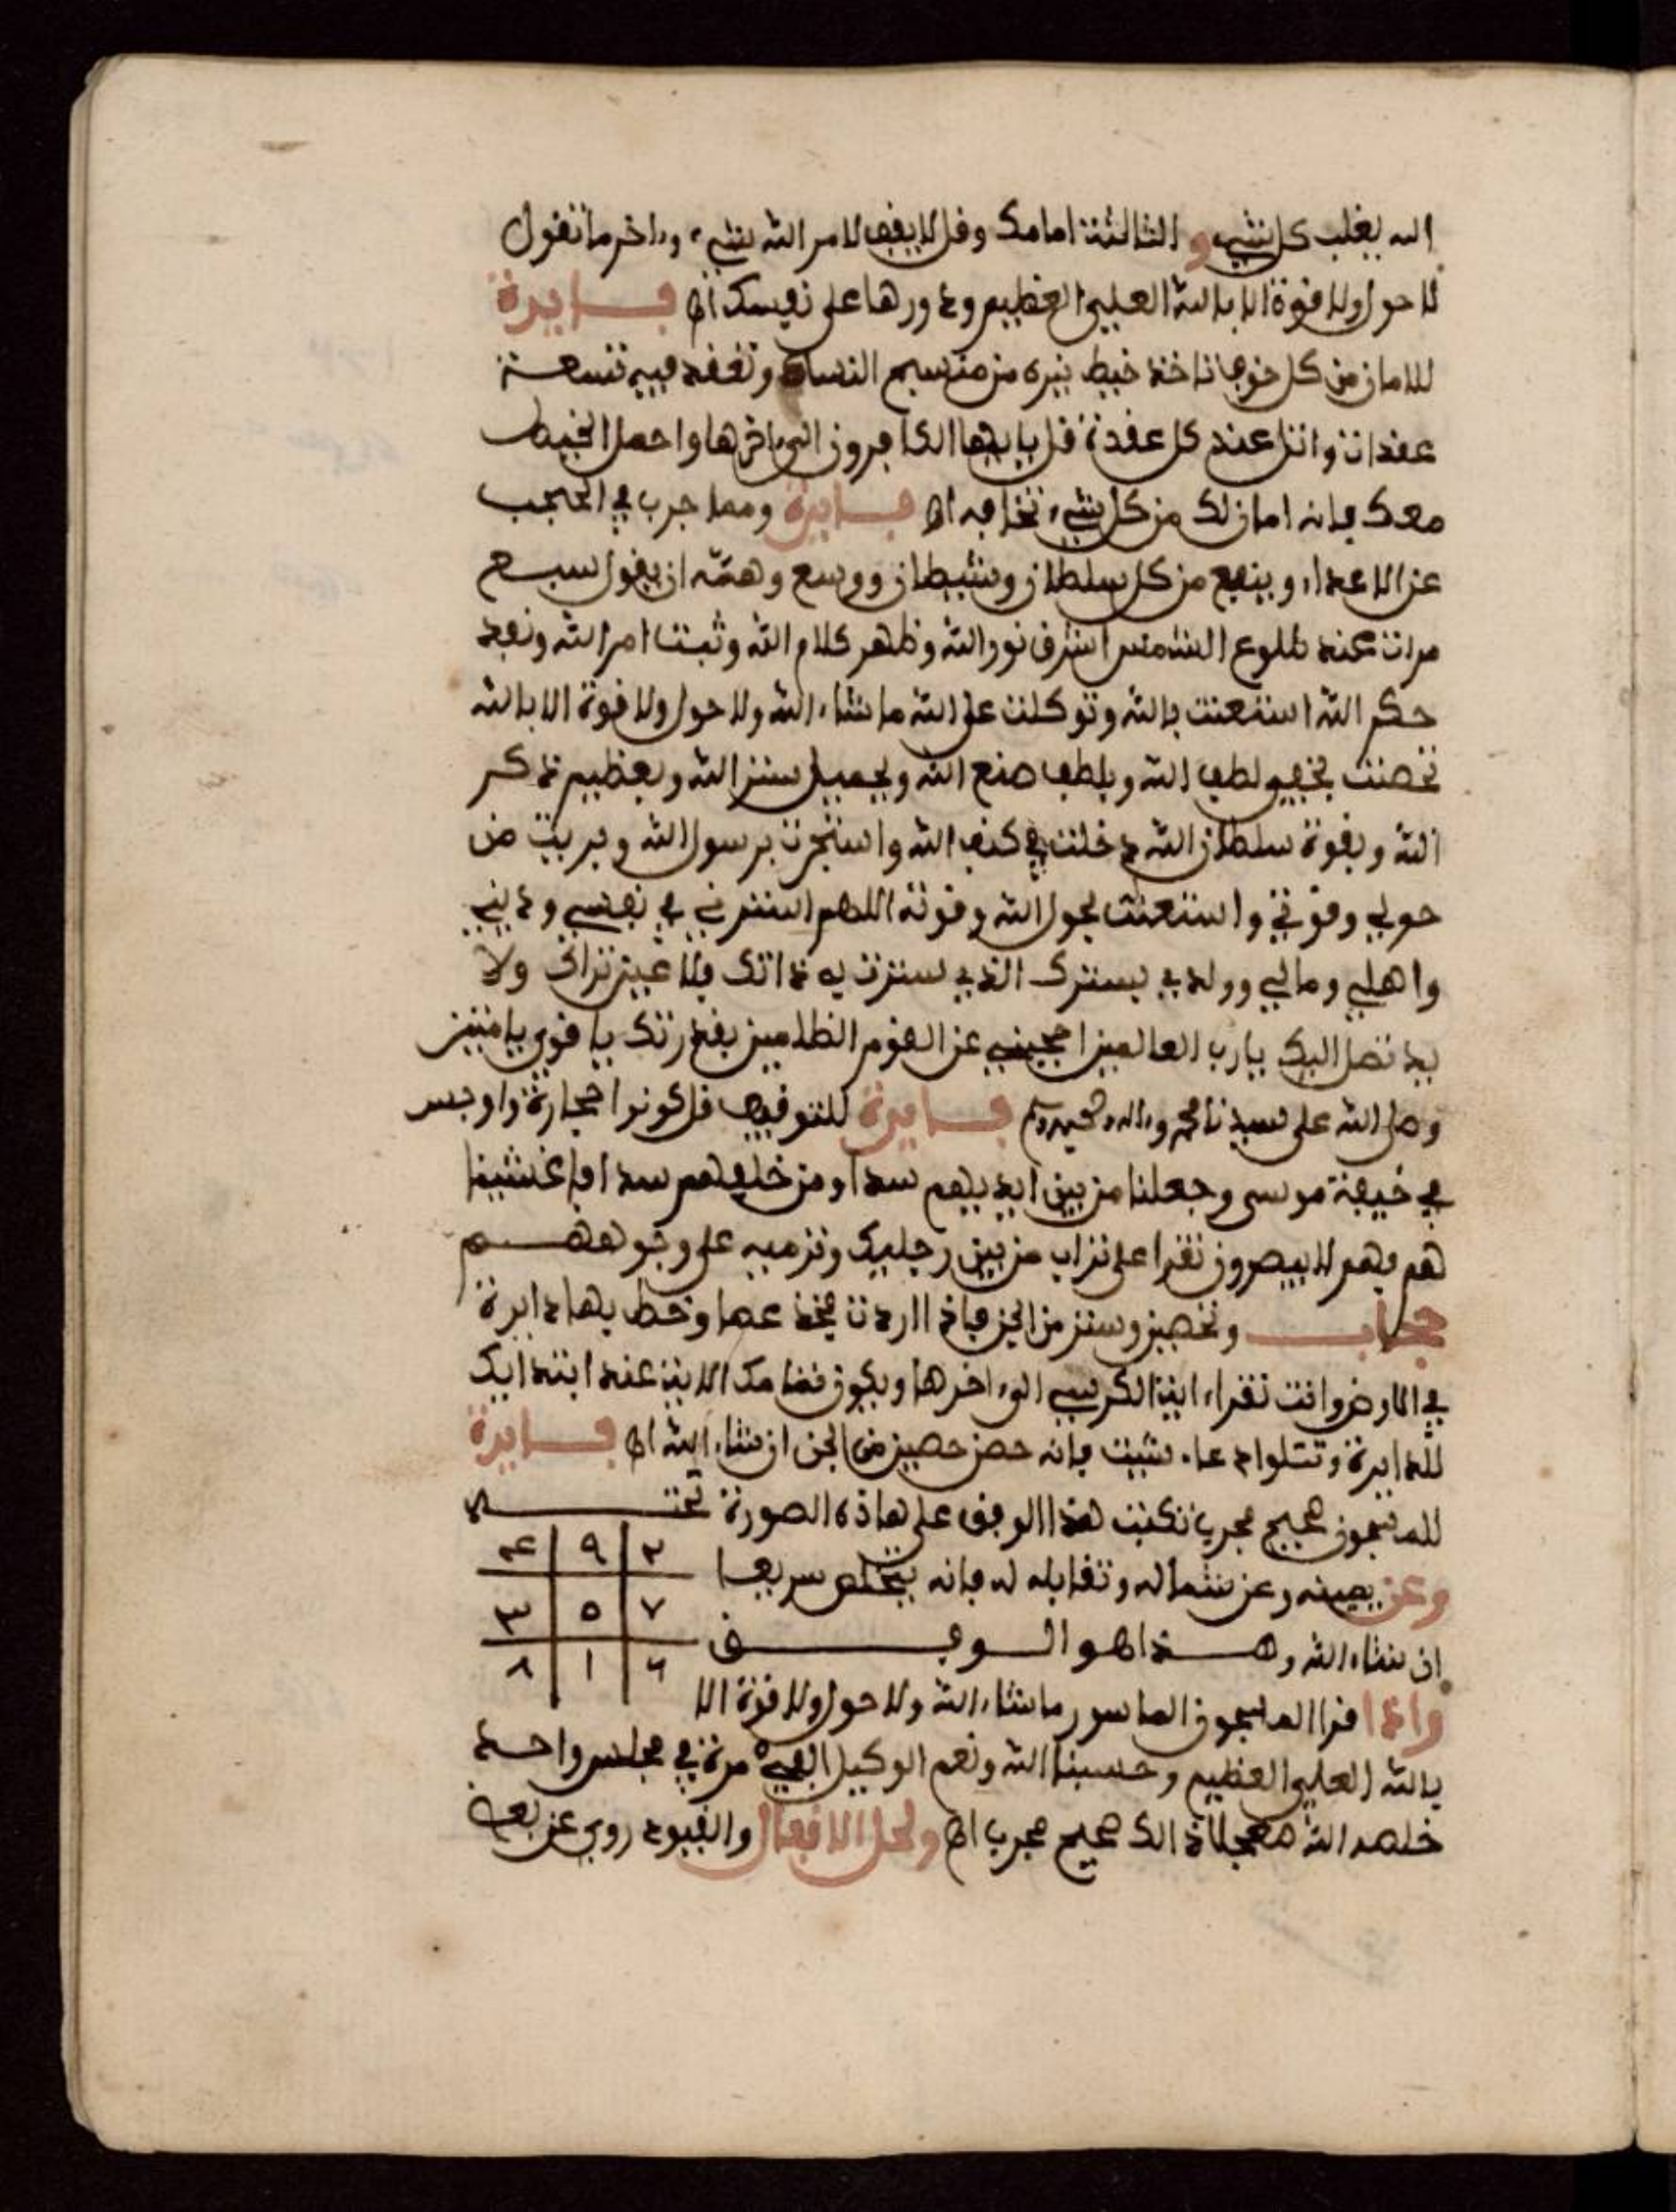 الله يغلب كل شيء و الثالثة امامك وقل لا يقف لامر الله شيء واخر ما تقول
لا حول ولا قوة الا بالله العلي العظيم ودورها على نفسك اه فايدة
للامان من كل خوف تاخذ خيط نيره من منسج النساء وتعقد فيه تسعة
عقدات واتل عند كل عقدة قل يا ايها الكافرون الى اخرها واحمل الخيط
معك فانه امان لك من كل شيء تخافه اه فايدة ومما جرب في الحجب
عن الاعداء وينفع من كل سلطان وشيطان وسبع وهمه ان يقول سبع
مرات عند طلوع الشمس اشرق نور الله وظهر كلام الله وثبت امر الله ونفذ
حكم الله استعنت بالله وتوكلت على الله ما شاء الله ولا حول ولا قوة الا بالله
تحصنت بخفي لطف الله وبلطف صنع الله وبجميل ستر الله وبعظيم ذكر
الله وبقوة سلطان الله دخلت في كنف الله واستجرت برسول الله وبريت من
حولي وقوتي واستعنت بحول الله وقوته اللهم استرني في نفسي وديني
واهلي ومالي وولدي بسترك الذي سترت به ذاتك فلا عين تراك ولا
يد تصل اليك يا رب العالمين احجبني عن القوم الظالمين بقدرتك يا قوي يا متين
وصلى الله على سيدنا محمد واله وصحبه وسلم فايدة للتوقيف قل كونوا حجارة واوجس
في خيفة موسى وجعلنا من بين ايديهم سدا ومن خلفهم سدا فاغشينا
هم فهم لا يبصرون تقرا على تراب من بين رجليك وترميه على وجوههم
حجاب وتحصين وستر من الجن فاذا اردت فخذ عصا وخط بها دايرة
في الارض وانت تقراء اية الكرسي الى اخرها ويكون ختامك الاية عند ابتدايك
للدايرة وتتلوا دعاء شيت فانه حصن حصين من الجن ان شاء الله اه فايدة
للمسجون صحيح مجرب تكتب هذا الوفق على هاذه الصورة تحته
وعن يمينه وعن شماله وتقابله له فانه يتخلص سريعا
ان شاء الله وهذا هو الوفق
٢ ٩ ٤
٧ ٥ ٣
٦ ١ ٨
واذا قرا المسجون الماسور ما شاء الله ولا حول ولا قوة الا
بالله العلي العظيم وحسبنا الله ونعم الوكيل الفي مرة في مجلس واحد
خلصه الله معجلا ذالك صحيح مجرب اه ولحل الاقفال والقيود روي عن بعض